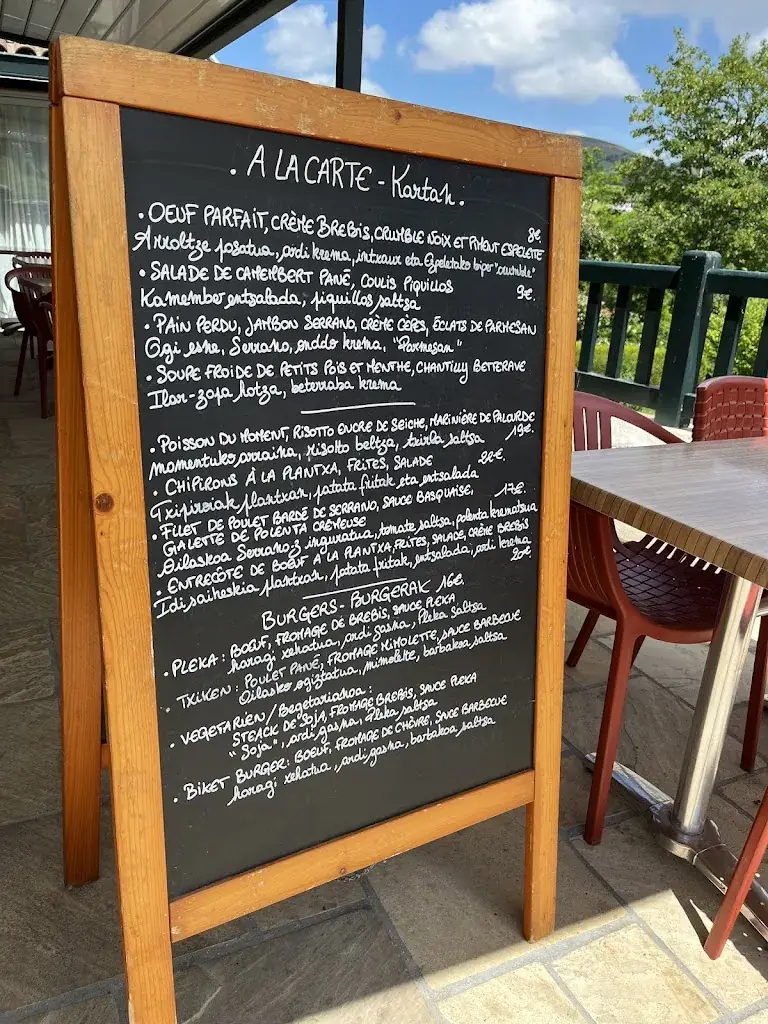 . A LA CARTE - Kartan.
• OEUF PARFAIT, CRÊME BREBIS, CRUMBLE NOIX ET PIMENT ESPELETTE 8€.
Arroltze posatua, ardi krema, intxaur eta Ezpeletako biper "crumble"
• SALADE DE CAMEMBERT PANÉ, COULIS PIQUILLOS 9€.
Kamember entsalada, piquillos saltsa
• PAIN PERDU, JAMBON SERRANO, CRÈME CÈPES, ÉCLATS DE PARMESAN
Ogi esne, Serrano, onddo krema, "Parmesan"
• SOUPE FROIDE DE PETITS POIS ET MENTHE, CHANTILLY BETTERAVE
Ilar-zopa hotza, beterraba krema
• POISSON DU MOMENT, RISOTTO ENCRE DE SEICHE, MARINIÈRE DE PALOURDE
momentuko arraina, risolto beltza, txirla saltsa 19€.
• CHIPIRONS À LA PLANTXA, FRITES, SALADE 22€.
Txipiroiak plantxan, patata fritak eta entsalada
• FILET DE POULET BARDÉ DE SERRANO, SAUCE BASQUAISE, 17€.
GALETTE DE POLENTA CRÉMEUSE
Oilaskoa Serrano-z inguratua, tomate saltsa, polenta krematsua
• ENTRECÔTE DE BŒUF À LA PLANTXA, FRITES, SALADE, CRÈME BREBIS
Idi saiheskia plantxan, patata fritak, entsalada, ardi krema 20€
BURGERS - BURGERAK 16€.
• PLEKA : BŒUF, FROMAGE DE BREBIS, SAUCE PLEKA
haragi xehatua, ardi gasna, Pleka saltsa
• TXIKEN : POULET PANÉ, FROMAGE MIMOLETTE, SAUCE BARBECUE
Oilasko ogiztatua, mimolette, barbakoa saltsa
• VEGETARIEN / Begetarianoa :
STEACK DE SOJA, FROMAGE BREBIS, SAUCE PLEKA
"Soja", ardi gasna, Pleka saltsa
• BIKET BURGER : BOEUF, FROMAGE DE CHÈVRE, SAUCE BARBECUE
haragi xehatua, ardi gasna, barbakoa saltsa